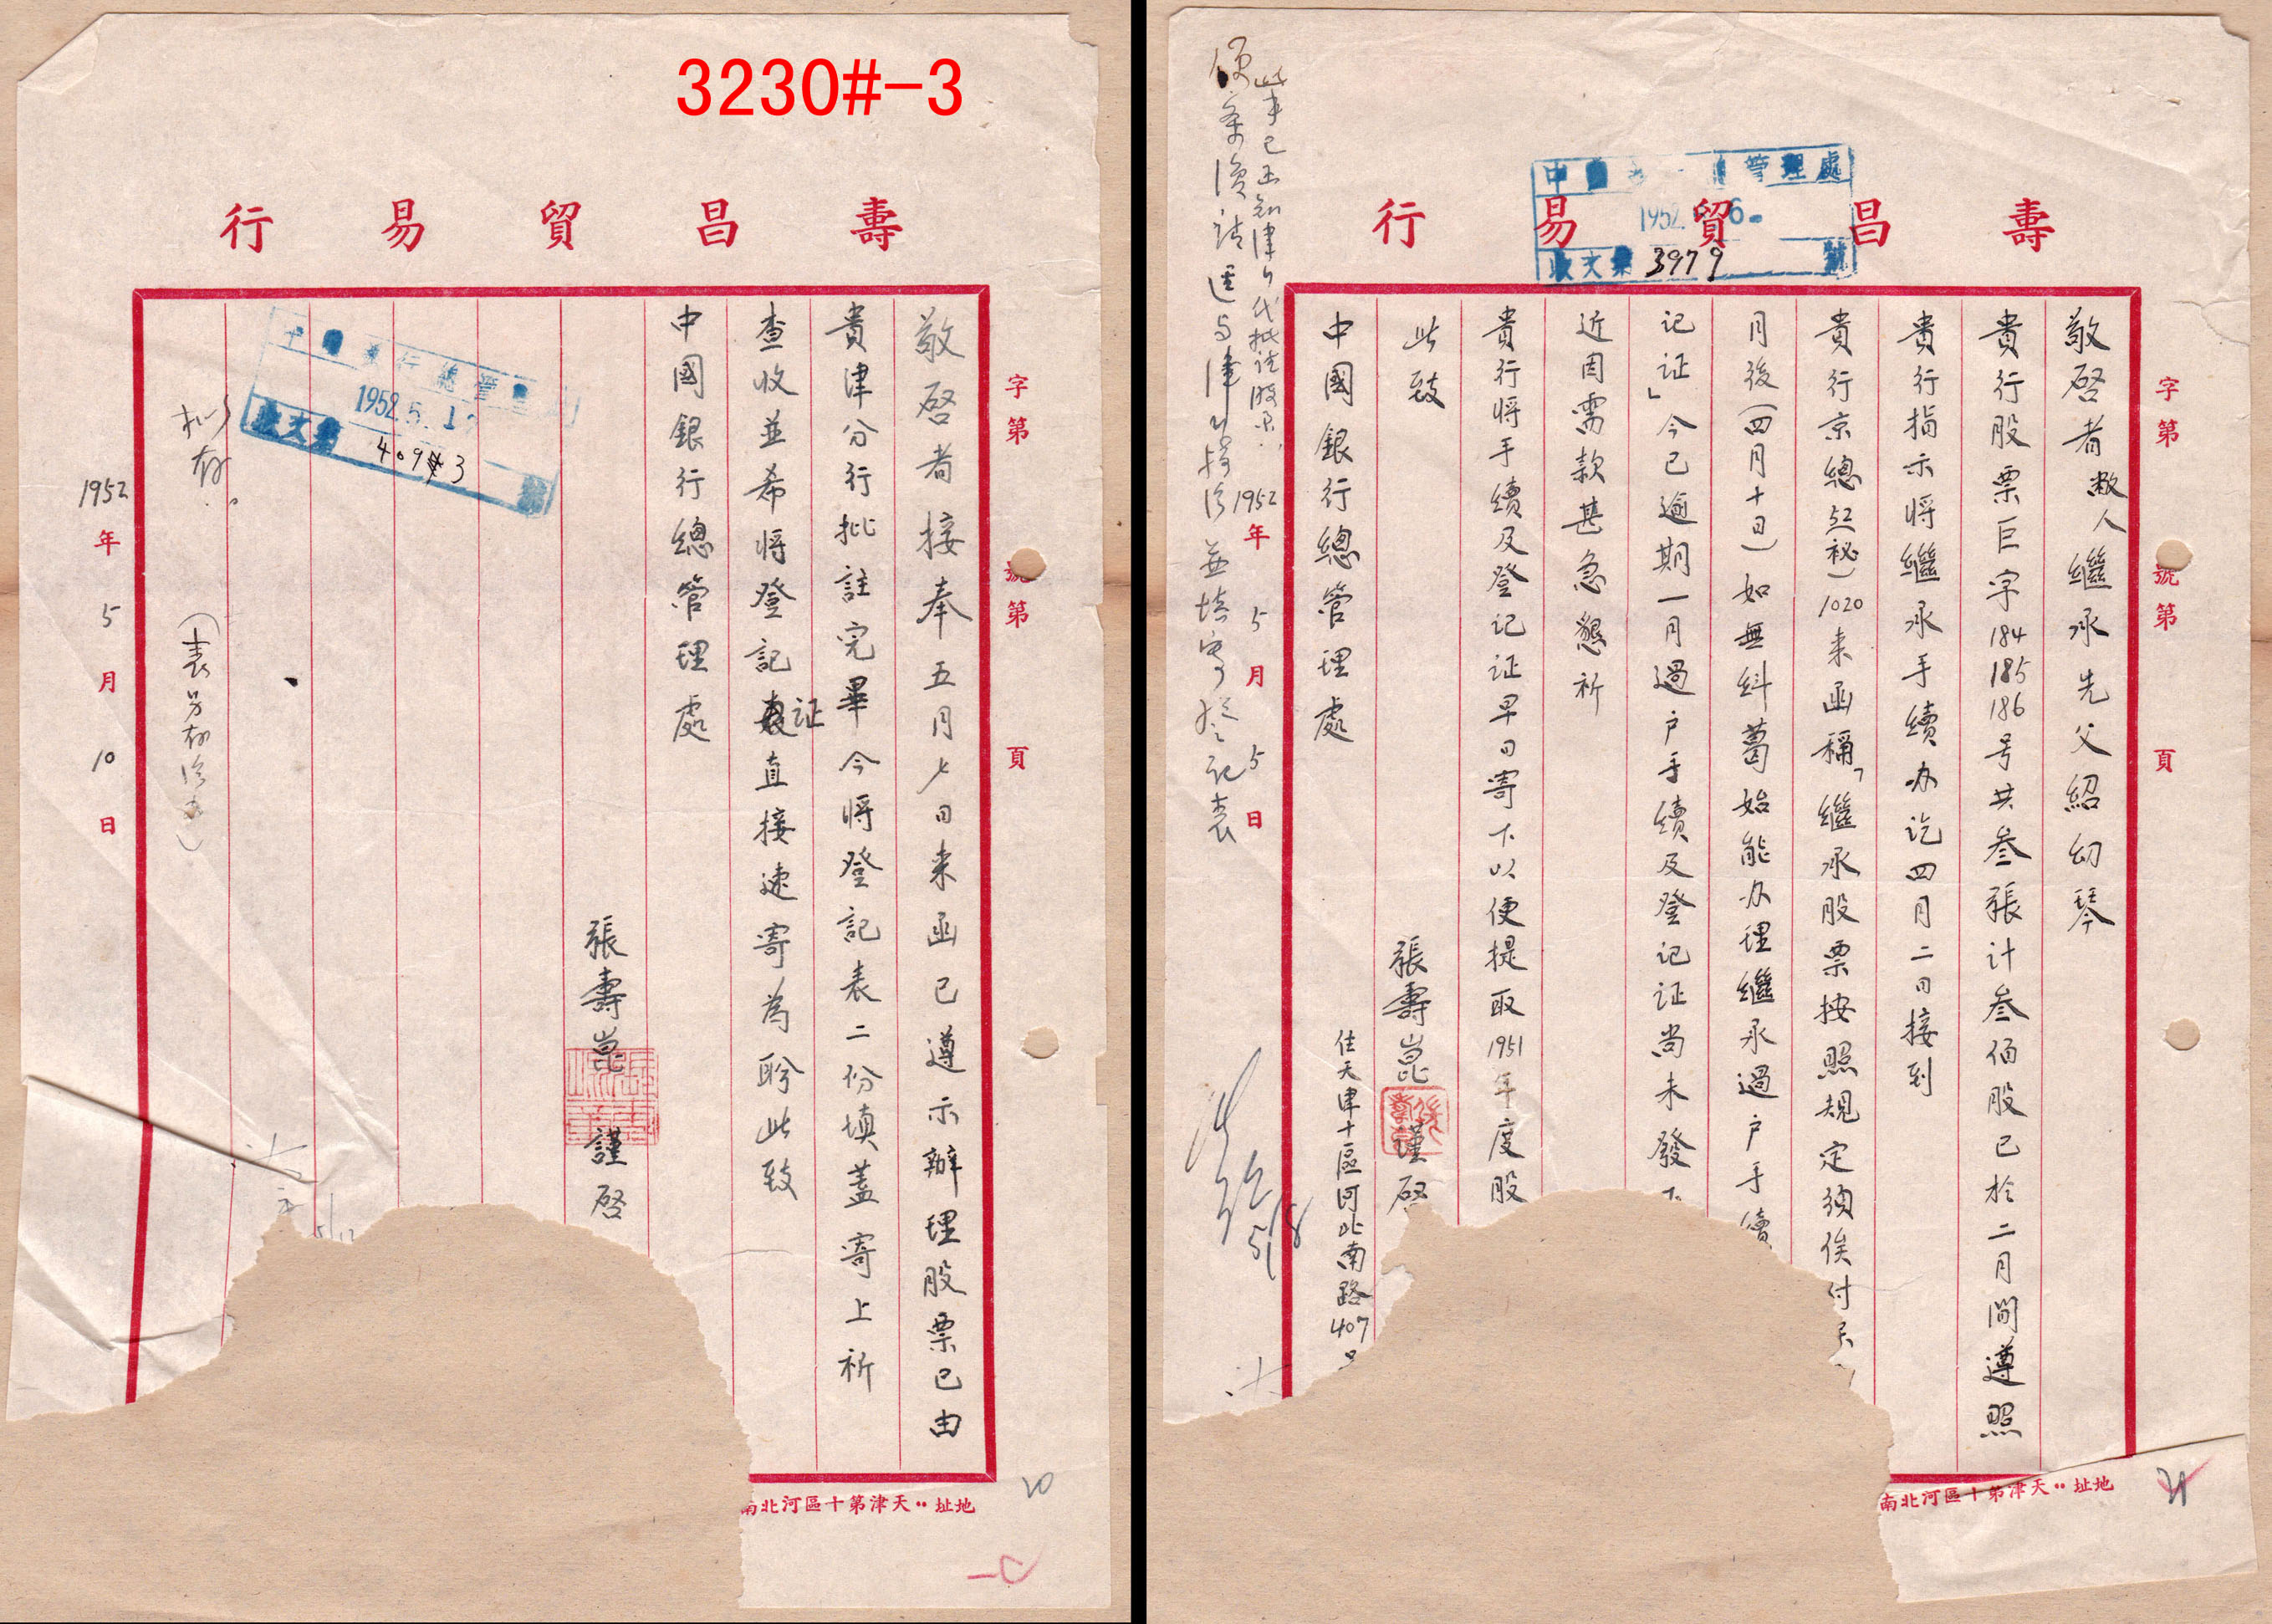 3230#-3
壽昌貿易行
字第 號第 頁
敬啓者接奉五月七日来函已遵示辦理股票已由
貴津分行批註完畢今將登記表二份填蓋寄上祈
查收並希將登記证直接速寄為盼此致
中國銀行總管理處
張壽崑謹啓
1952.5.1
收文第 409 3 號
拟存
(表另存
1952年5月10日
地址:天津第十區河北南
20
壽昌貿易行
管理處
1952. 6.
收文第 3979 號
字第 號第 頁
敬啓者敝人繼承先父紹幼琴
貴行股票巨字184 185 186号共叁張計叁佰股已於二月間遵照
貴行指示将繼承手續办訖四月二日接到
貴行京總(52秘)1020来函稱「繼承股票按照規定須俟付
月後(四月十日)如無糾葛始能办理繼承過户手續
记证」今已逾期一月過户手續及登记证尚未發下
近因需款甚急懇祈
貴行将手續及登记证早日寄下以便提取1951年度股
此致
中國銀行總管理處
張壽崑謹啓
住天津十區河北南路407
1952年5月5日
此事已函知津行代批註股票
並填寄登记表
5/8
地址:天津第十區河北南
21